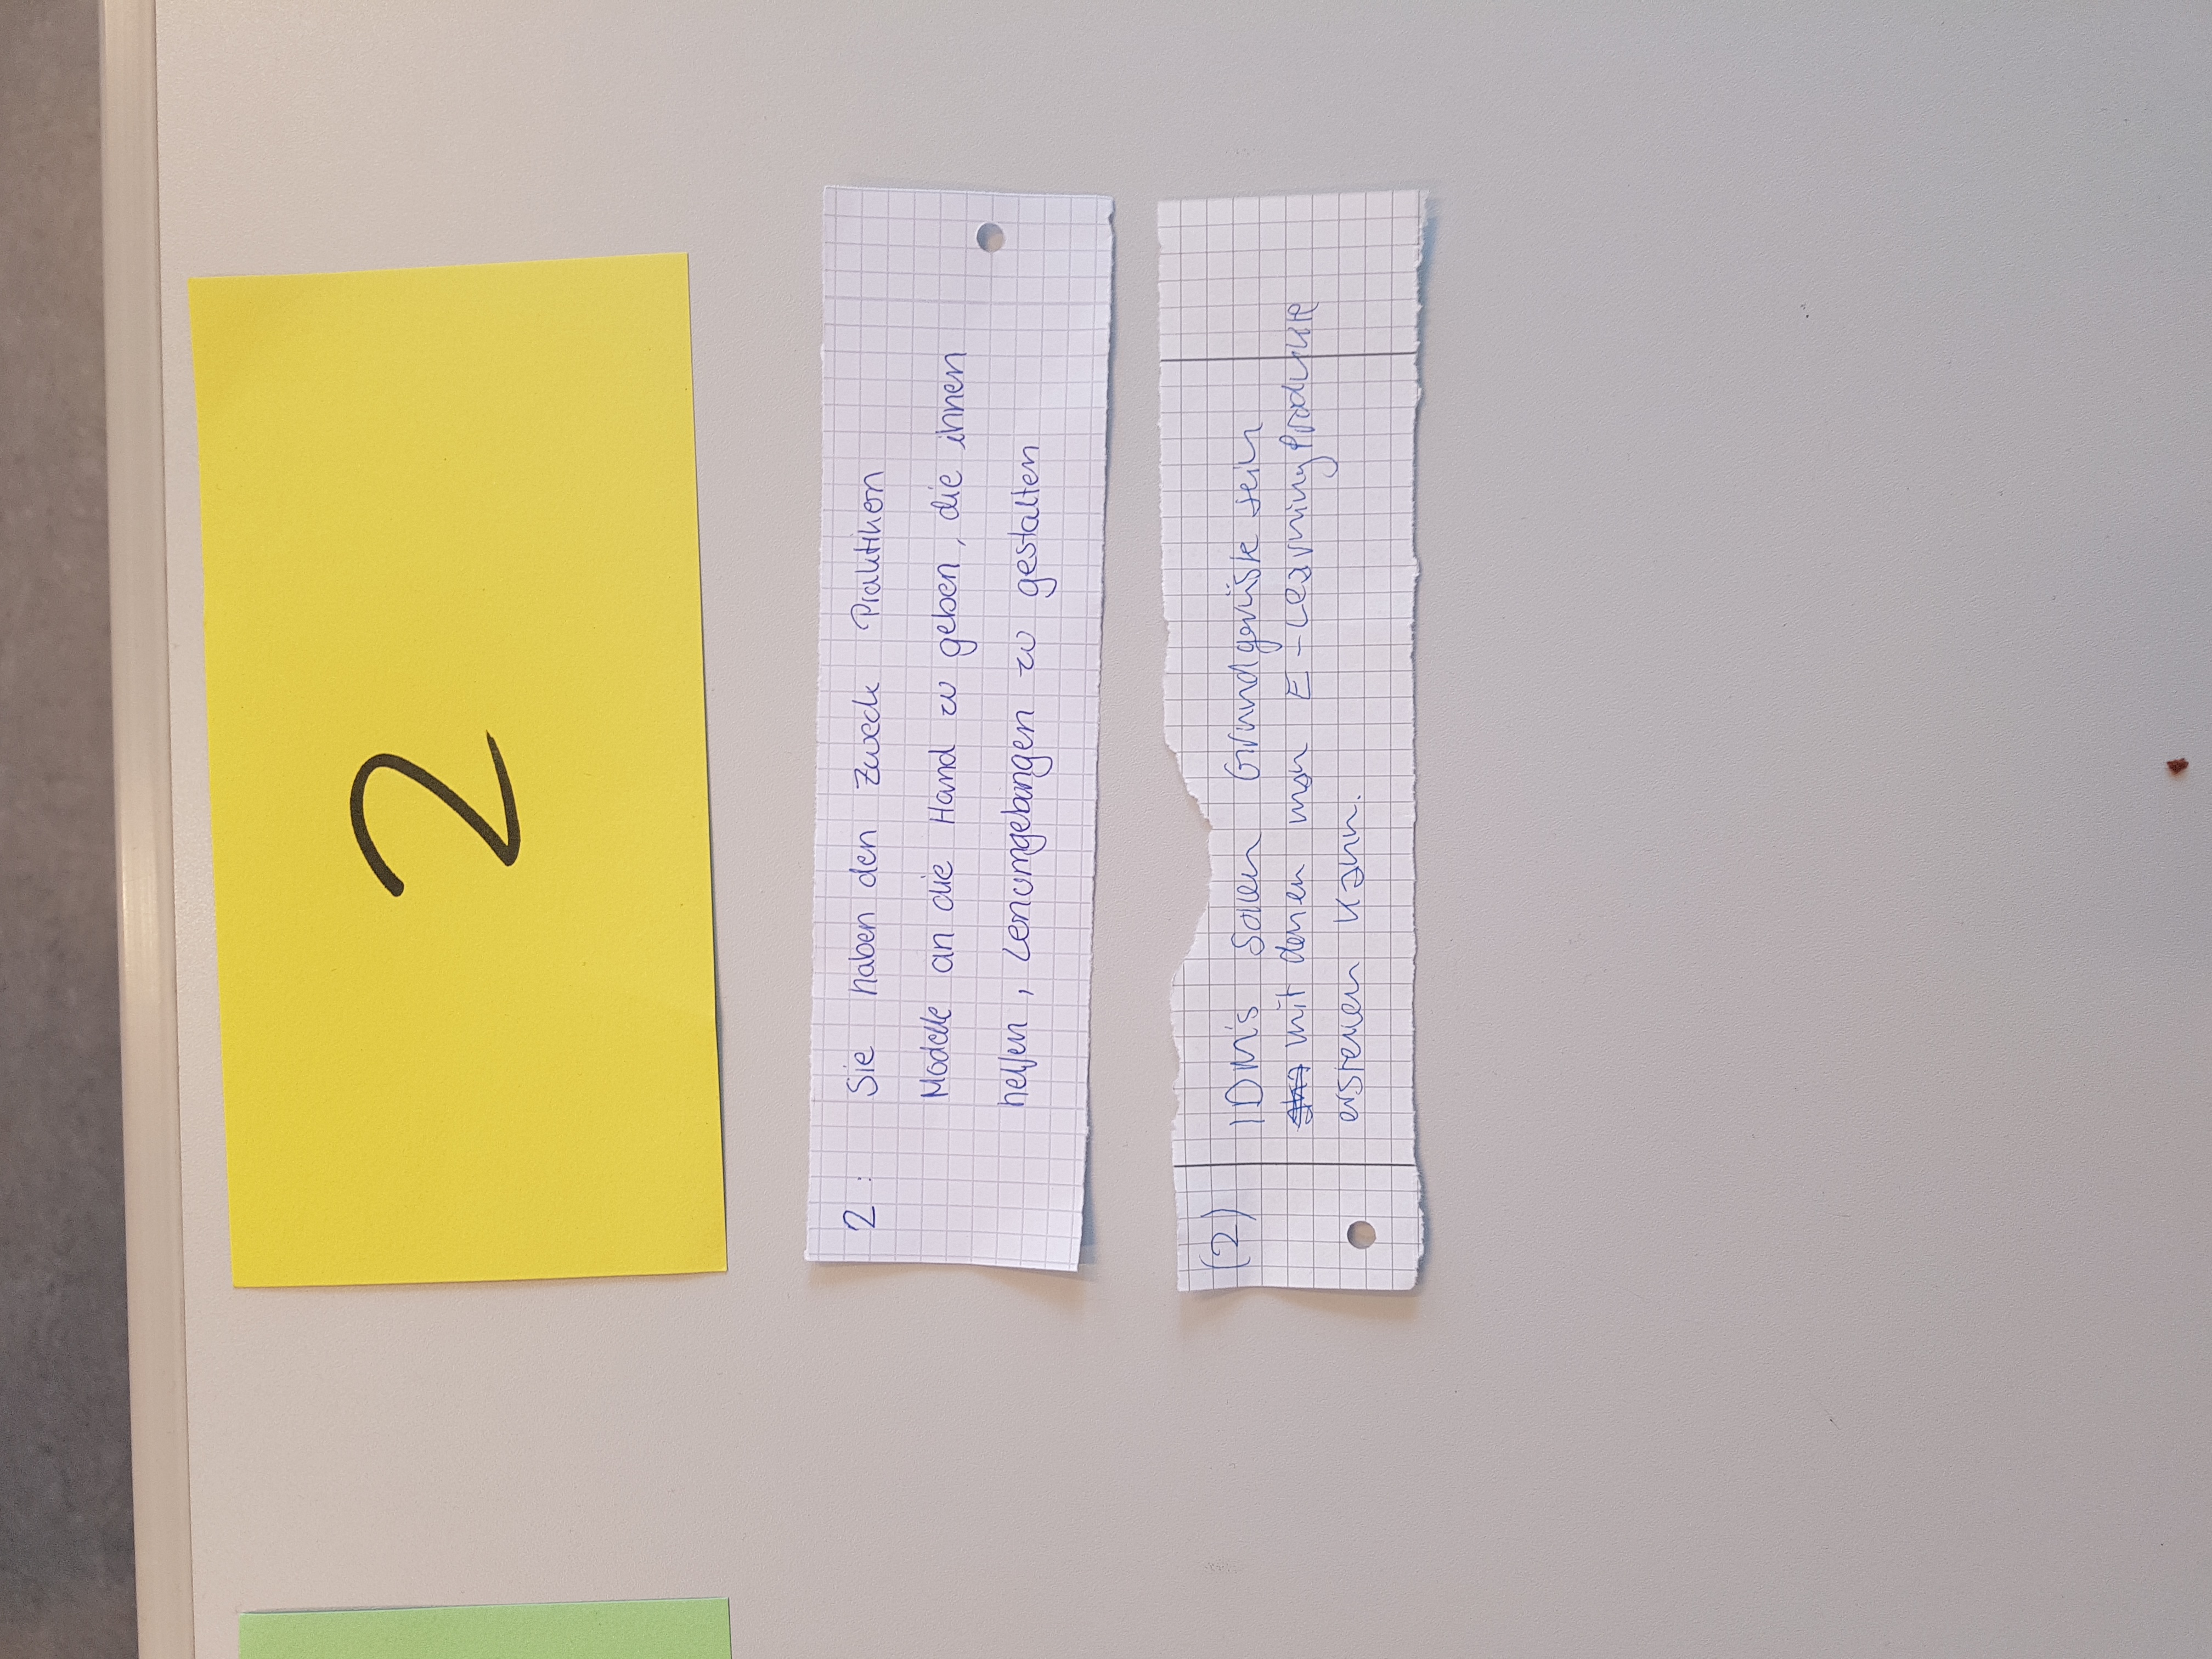 2
2: Sie haben den Zweck Praktiken
Modelle an die Hand zu geben, die ihnen
helfen, Lenumgebungen zu gestalten
(2) IDM's sollen Grundgerüste sein
mit denen man E-Learning Produkte
erstellen kann.